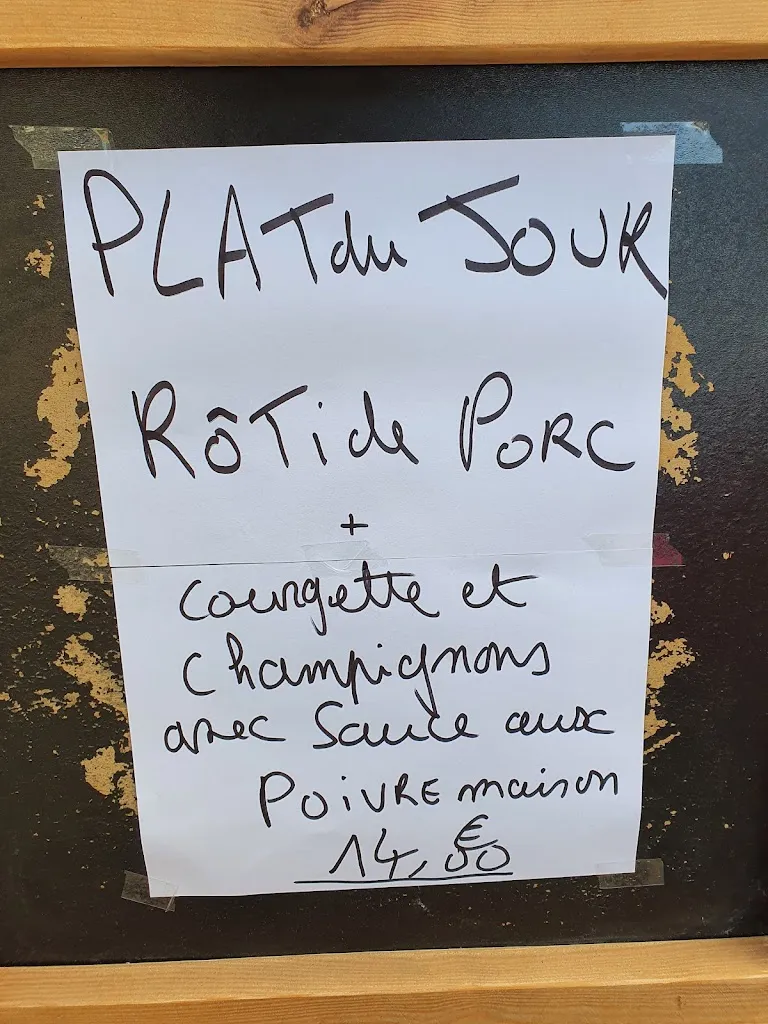 PLAT du JOUR
RÔTi de PORC
+
courgette et
champignons
avec sauce aux
POiVRE maison
14,00€